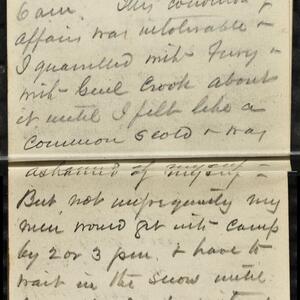 6 am. This condition of
affairs was intolerable &
I quarrelled with Furey &
with Genl Crook about
it until I felt like a
common scold & was
ashamed of myself &
But not unfrequently my
men would get into camp
by 2 or 3 pm & have to
wait in the snow until